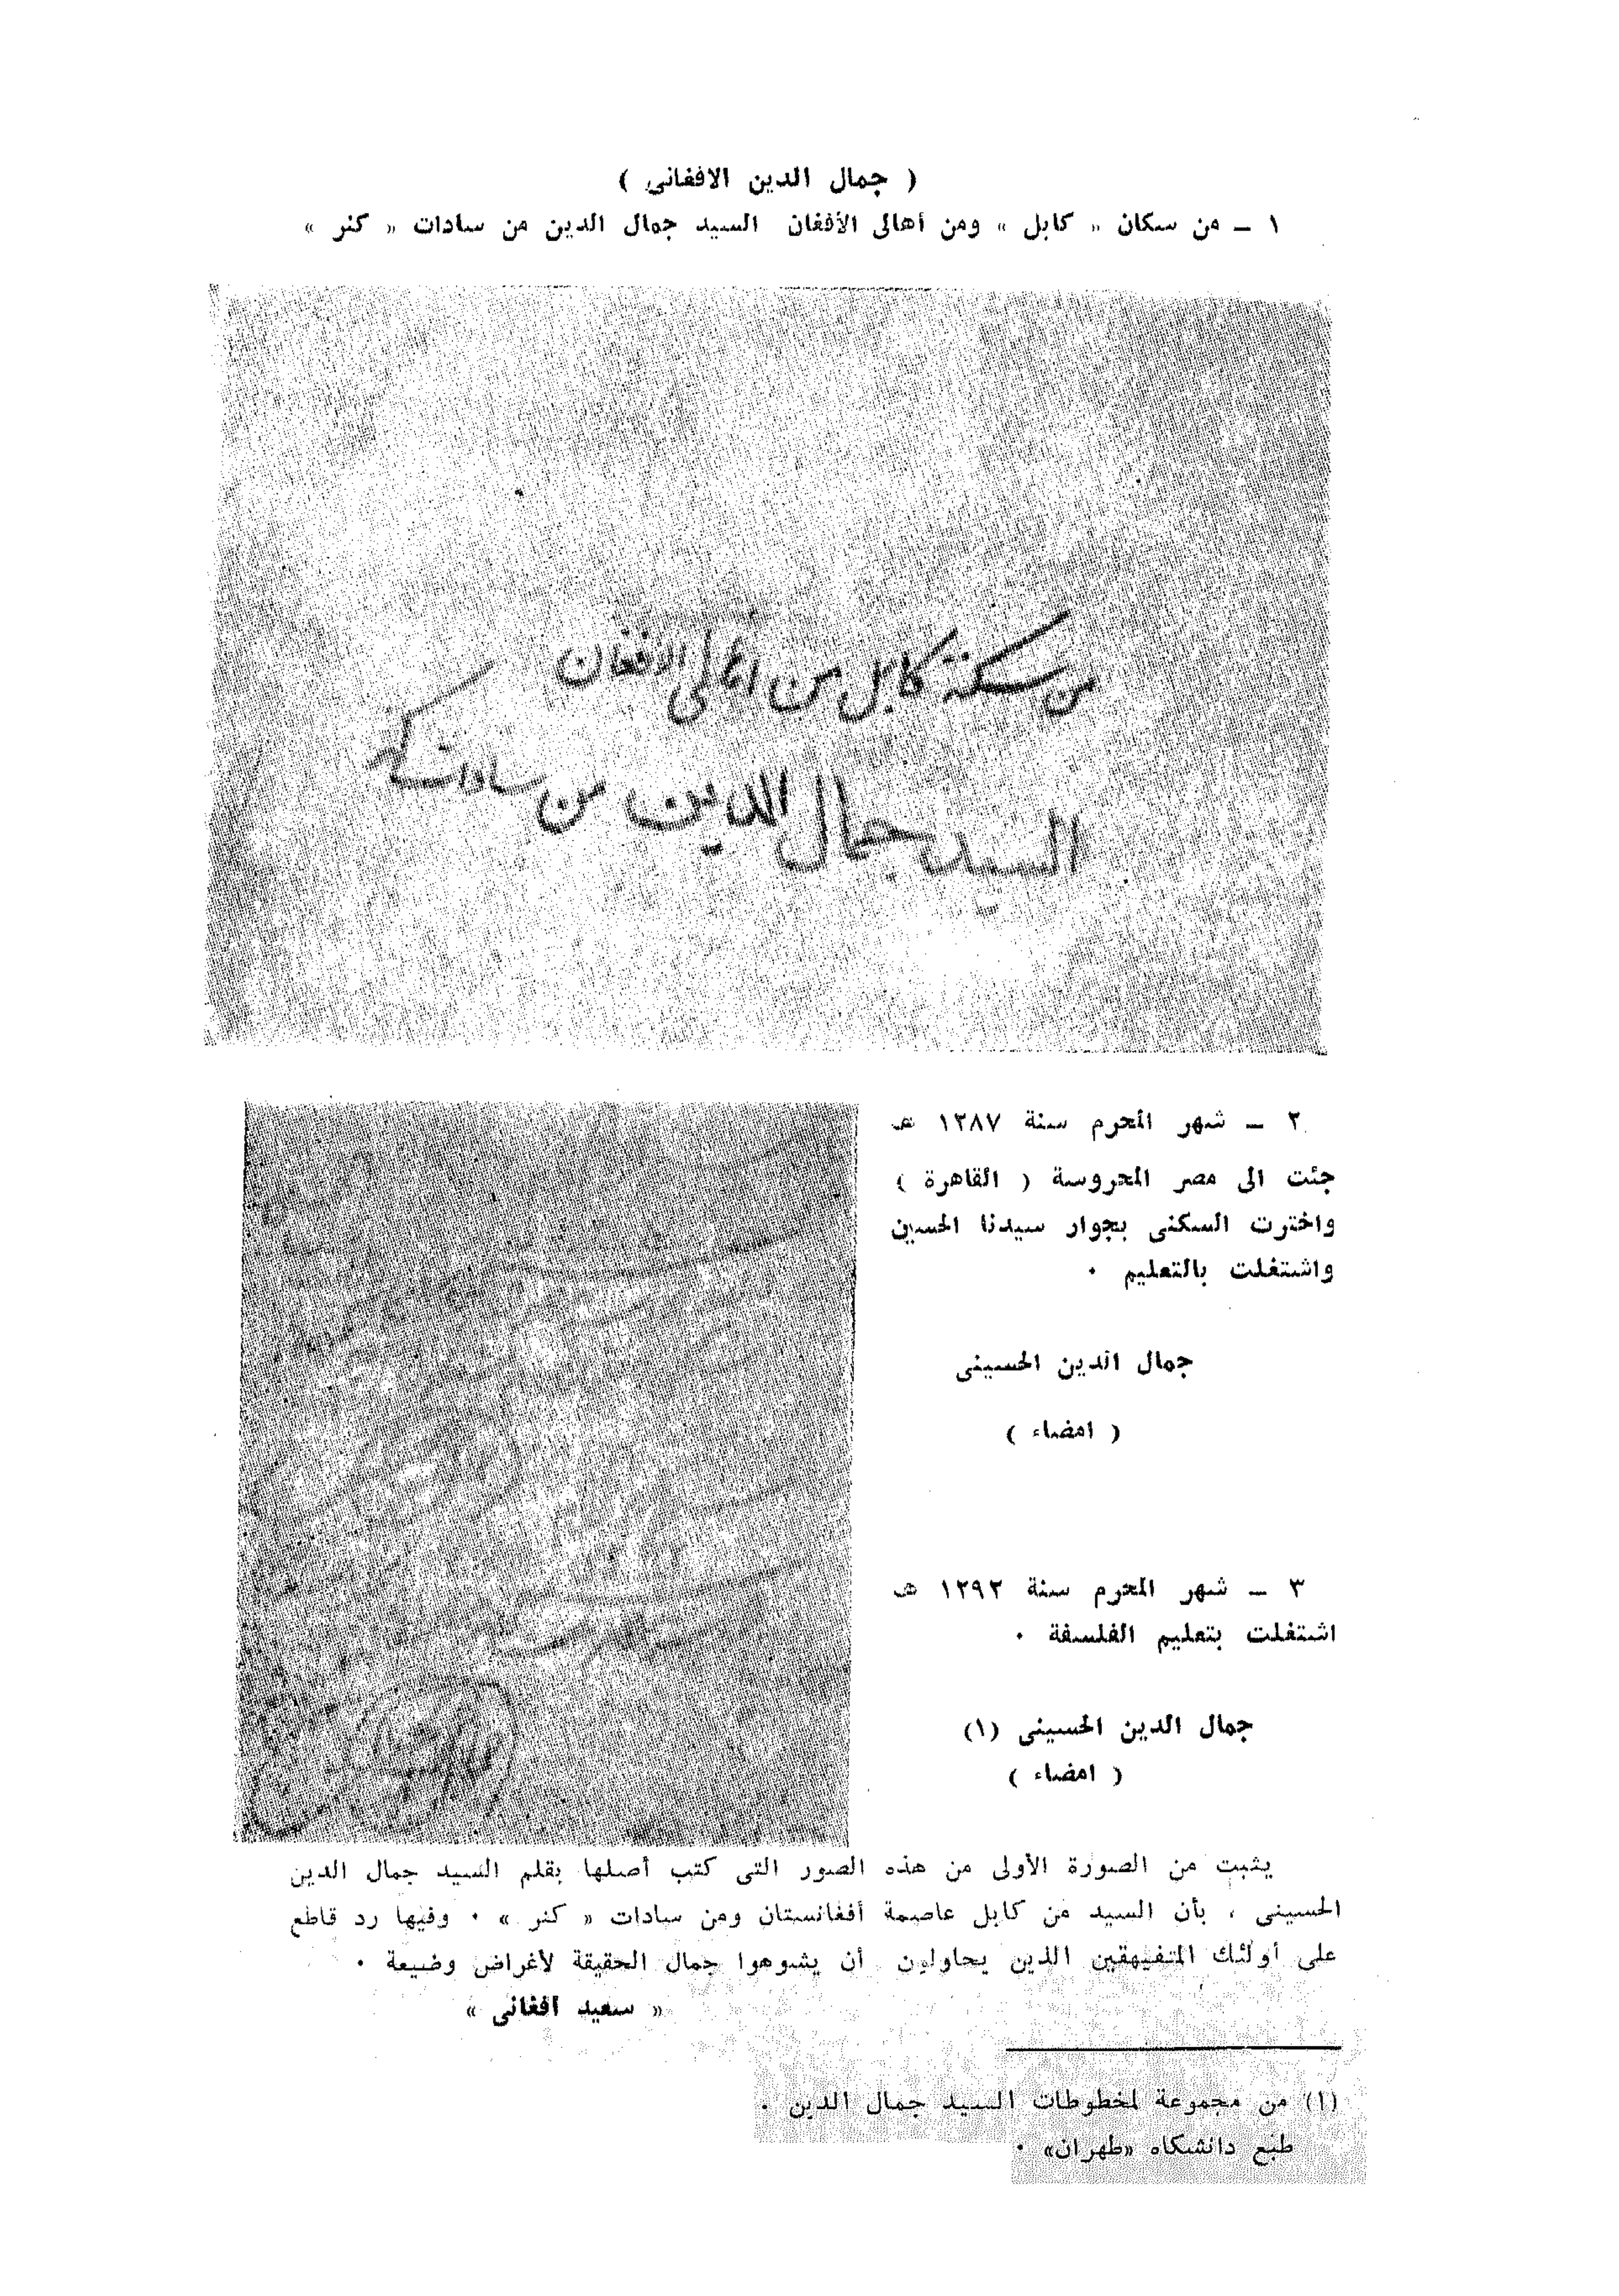 ( جمال الدين الافغانى )
١ ــ من سكان « كابل » ومن أهالى الأفغان السيد جمال الدين من سادات « كنر »
من سكنة كابل من اهالى الافغان
السيد جمال الدين من سادات كنر
٢ ــ شهر المحرم سنة ١٢٨٧ هـ
جئت الى مصر المحروسة ( القاهرة )
واخترت السكنى بجوار سيدنا الحسين
واشتغلت بالتعليم ٠
جمال الدين الحسينى
( امضاء )
٣ ــ شهر المحرم سنة ١٢٩٢ هـ
اشتغلت بتعليم الفلسفة ٠
جمال الدين الحسينى (١)
( امضاء )
يثبت من الصورة الأولى من هذه الصور التى كتب أصلها بقلم السيد جمال الدين
الحسينى ، بأن السيد من كابل عاصمة أفغانستان ومن سادات « كنر » ٠ وفيها رد قاطع
على أولئك المتفيهقين الذين يحاولون أن يشوهوا جمال الحقيقة لأغراض وضيعة ٠
« سعيد افغانى »
(١) من مجموعة لمخطوطات السيد جمال الدين .
طبع دانشكاه «طهران» ٠